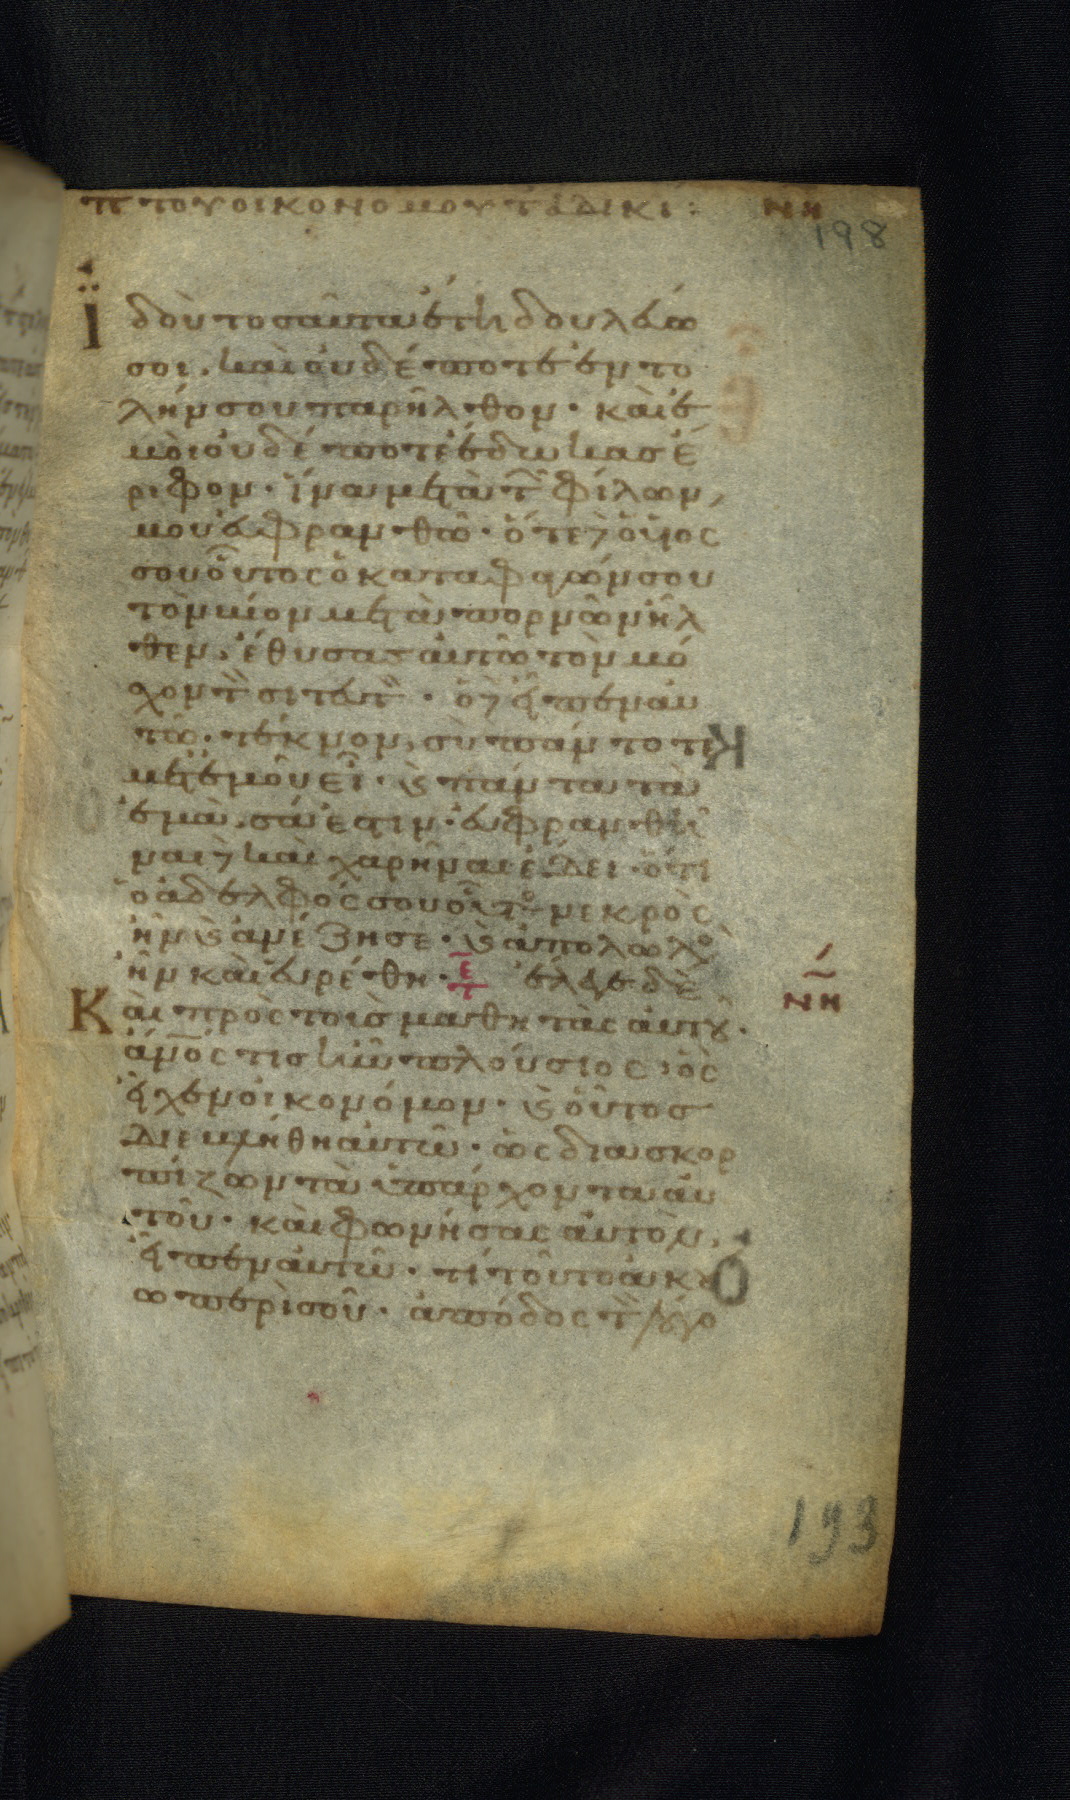 π τοῦ οἰκονόμου τ ἀδικί : νη
198
Ϊδοὺ τοσαῦτα ἔτη δουλεύω
σοι, καὶ οὐδέποτε ἐντο
λήν σου παρῆλθον· καὶ ἐ
μοὶ οὐδέποτε ἔδωκας ἔ
ριφον· ἵνα μετὰ τ φίλων
μου εὐφρανθῶ· ὅτε δὲ ὁ υἱός
σου οὗτος ὁ καταφαγών σου
τὸν βίον μετὰ πορνῶν ἦλ
θεν, ἔθυσας αὐτῷ τὸν μό
χον τὸν σιτευτ· ὁ δὲ εἶπεν αὐ
τῷ· τέκνον, σὺ πάντοτε
μετ ἐμοῦ εἶ· καὶ πάντα τὰ
ἐμὰ, σά ἐστιν· εὐφρανθῆ
ναι δὲ καὶ χαρῆναι ἔδει· ὅτι
ὁ ἀδελφός σου οὗτο νεκρὸς
ἦν καὶ ἀνέζησε· καὶ ἀπολωλὸ
ἦν καὶ εὑρέθη· τε ἔλεγε δὲ
Καὶ πρὸς τοὺς μαθητὰς αὐτοῦ·
ἄνος τις ἦν πλούσιος· ὃς νη
εἶχεν οἰκονόμον· καὶ οὗτος
διεβλήθη αὐτῷ· ὡς διασκορ
πίζων τὰ ὑπάρχοντα αὐ
τοῦ· καὶ φωνήσας αὐτὸν,
εἶπεν αὐτῷ· τί τοῦτο ἀκού
ω περὶ σοῦ· ἀπόδος τὸν λόγο
193